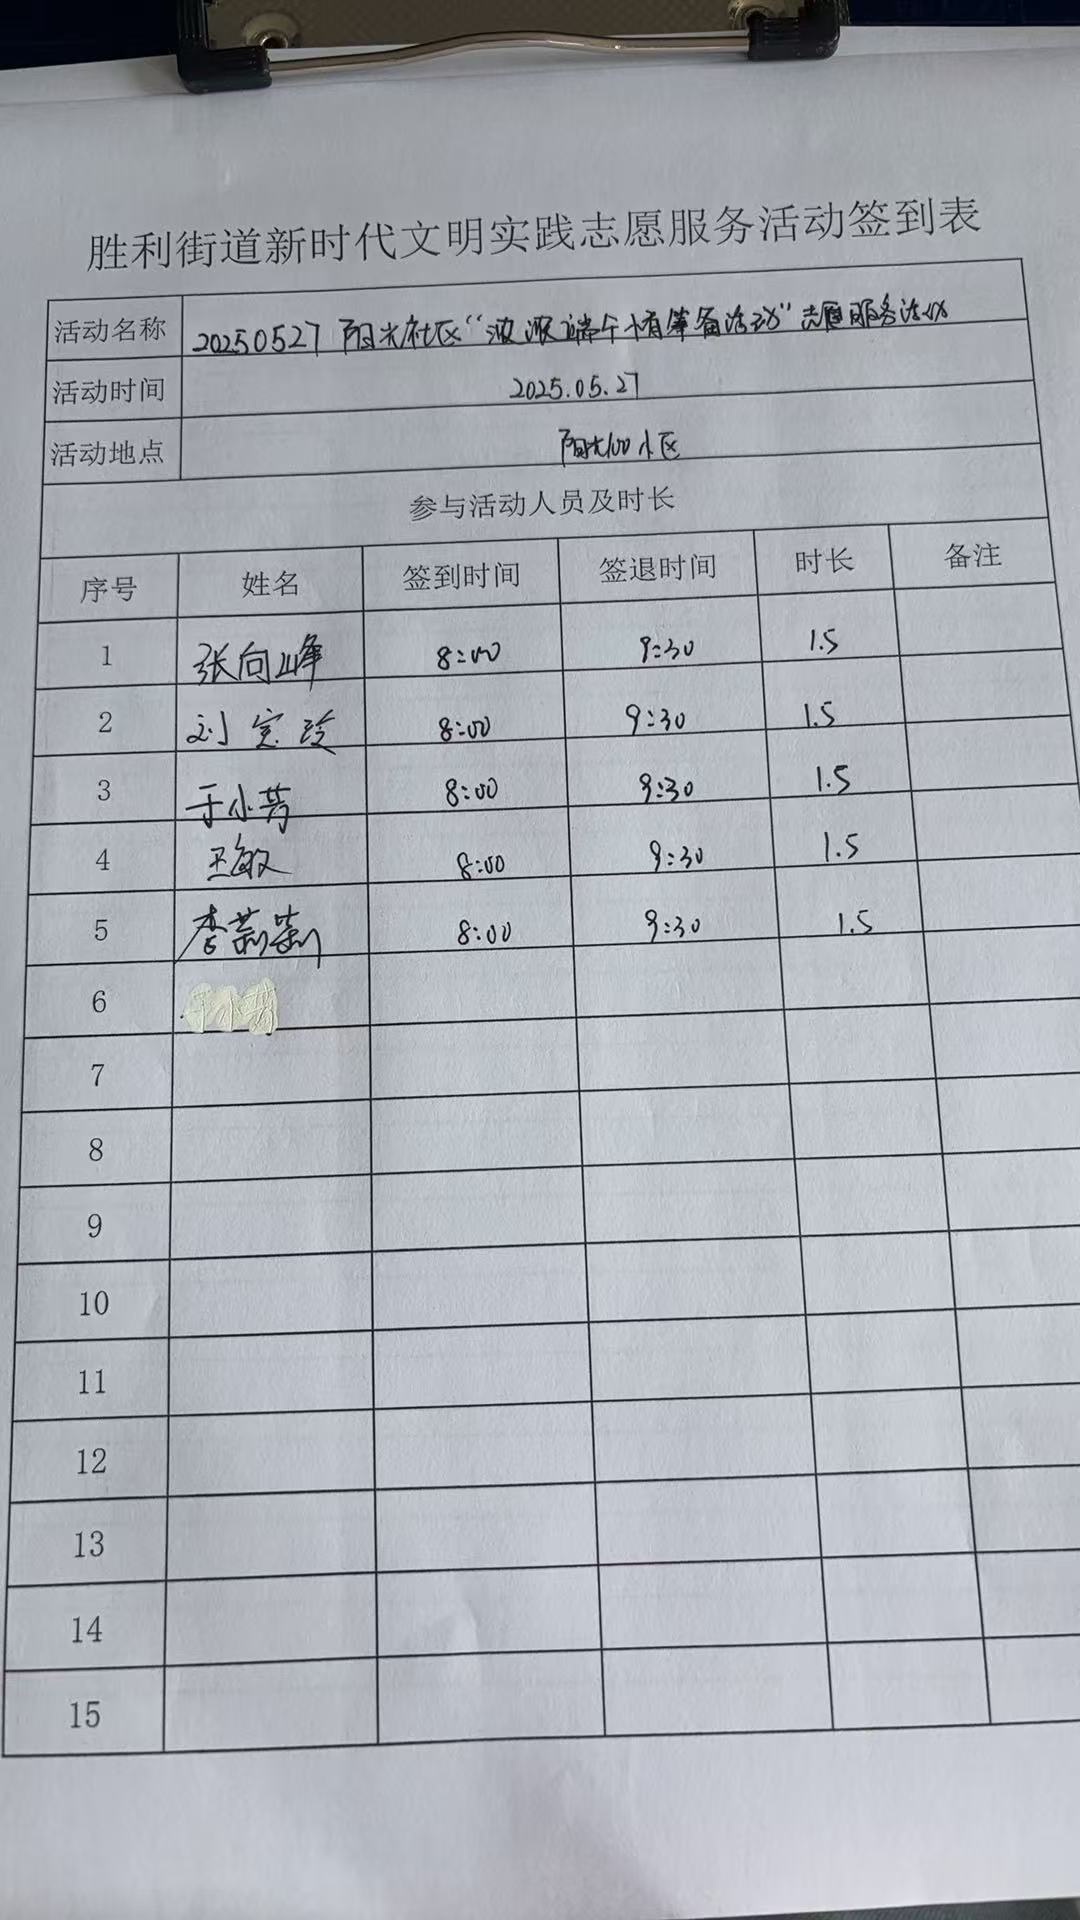 胜利街道新时代文明实践志愿服务活动签到表
活动名称 20250527 阳光社区“浓浓端午情筹备活动”志愿服务活动
活动时间 2025.05.27
活动地点 阳光100小区
参与活动人员及时长
序号 姓名 签到时间 签退时间 时长 备注
1 张向峰 8:00 9:30 1.5
2 刘宝玲 8:00 9:30 1.5
3 于小芳 8:00 9:30 1.5
4 王敏 8:00 9:30 1.5
5 李莉莉 8:00 9:30 1.5
6
7
8
9
10
11
12
13
14
15